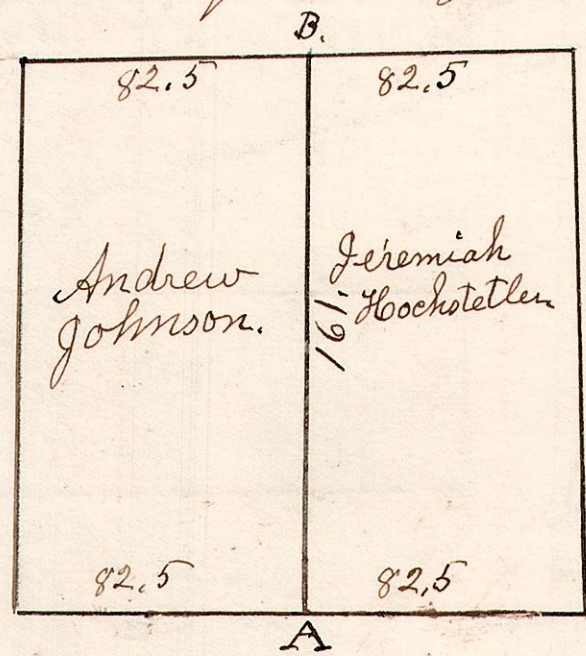 B.
82.5 82.5
Andrew
Johnson.
Jeremiah
Hochstetler
161.
82.5 82.5
A